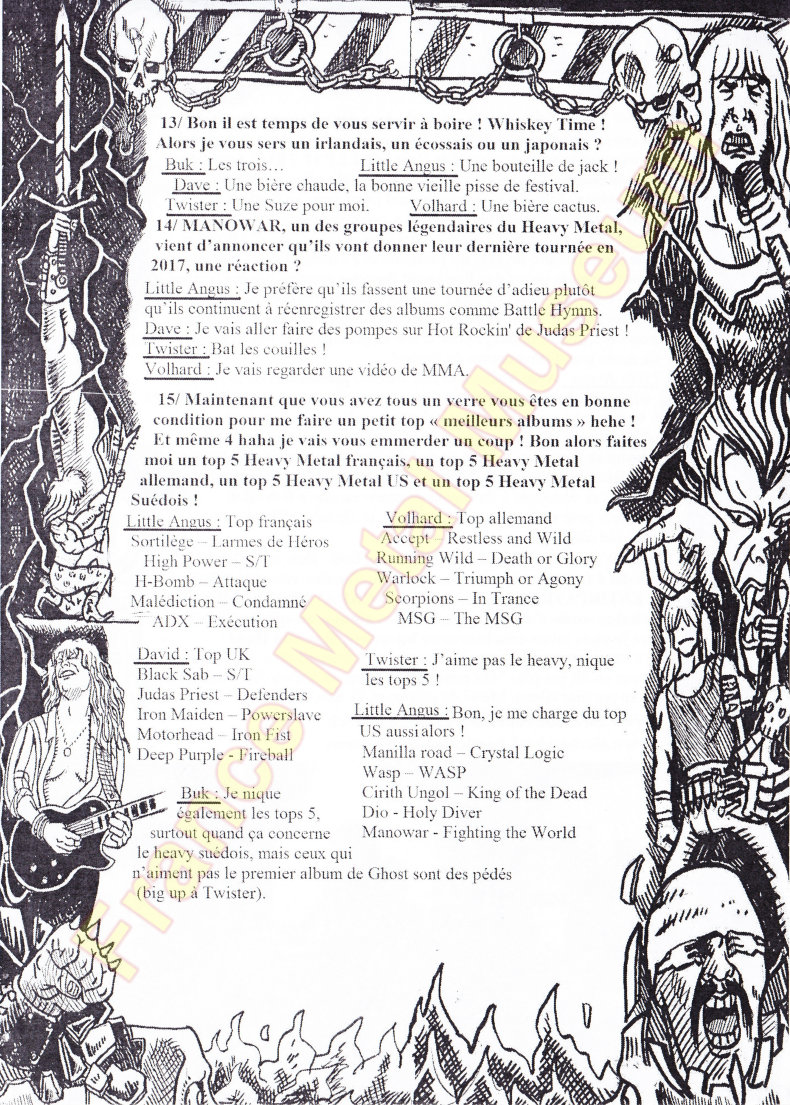 13/ Bon il est temps de vous servir à boire ! Whiskey Time !
Alors je vous sers un irlandais, un écossais ou un japonais ?
Buk : Les trois… Little Angus : Une bouteille de jack !
Dave : Une bière chaude, la bonne vieille pisse de festival.
Twister : Une Suze pour moi. Volhard : Une bière cactus.
14/ MANOWAR, un des groupes légendaires du Heavy Metal,
vient d’annoncer qu’ils vont donner leur dernière tournée en
2017, une réaction ?
Little Angus : Je préfère qu’ils fassent une tournée d’adieu plutôt
qu’ils continuent à réenregistrer des albums comme Battle Hymns.
Dave : Je vais aller faire des pompes sur Hot Rockin' de Judas Priest !
Twister : Bat les couilles !
Volhard : Je vais regarder une vidéo de MMA.
15/ Maintenant que vous avez tous un verre vous êtes en bonne
condition pour me faire un petit top « meilleurs albums » hehe !
Et même 4 haha je vais vous emmerder un coup ! Bon alors faites
moi un top 5 Heavy Metal français, un top 5 Heavy Metal
allemand, un top 5 Heavy Metal US et un top 5 Heavy Metal
Suédois !
Little Angus : Top français
Sortilège – Larmes de Héros
High Power – S/T
H-Bomb – Attaque
Malédiction – Condamné
ADX – Exécution
Volhard : Top allemand
Accept – Restless and Wild
Running Wild – Death or Glory
Warlock – Triumph or Agony
Scorpions – In Trance
MSG – The MSG
David : Top UK
Black Sab – S/T
Judas Priest – Defenders
Iron Maiden – Powerslave
Motorhead – Iron Fist
Deep Purple - Fireball
Twister : J’aime pas le heavy, nique
les tops 5 !
Little Angus : Bon, je me charge du top
US aussi alors !
Manilla road – Crystal Logic
Wasp – WASP
Cirith Ungol – King of the Dead
Dio - Holy Diver
Manowar - Fighting the World
Buk : Je nique
également les tops 5,
surtout quand ça concerne
le heavy suédois, mais ceux qui
n’aiment pas le premier album de Ghost sont des pédés
(big up à Twister).
France Metal Museum